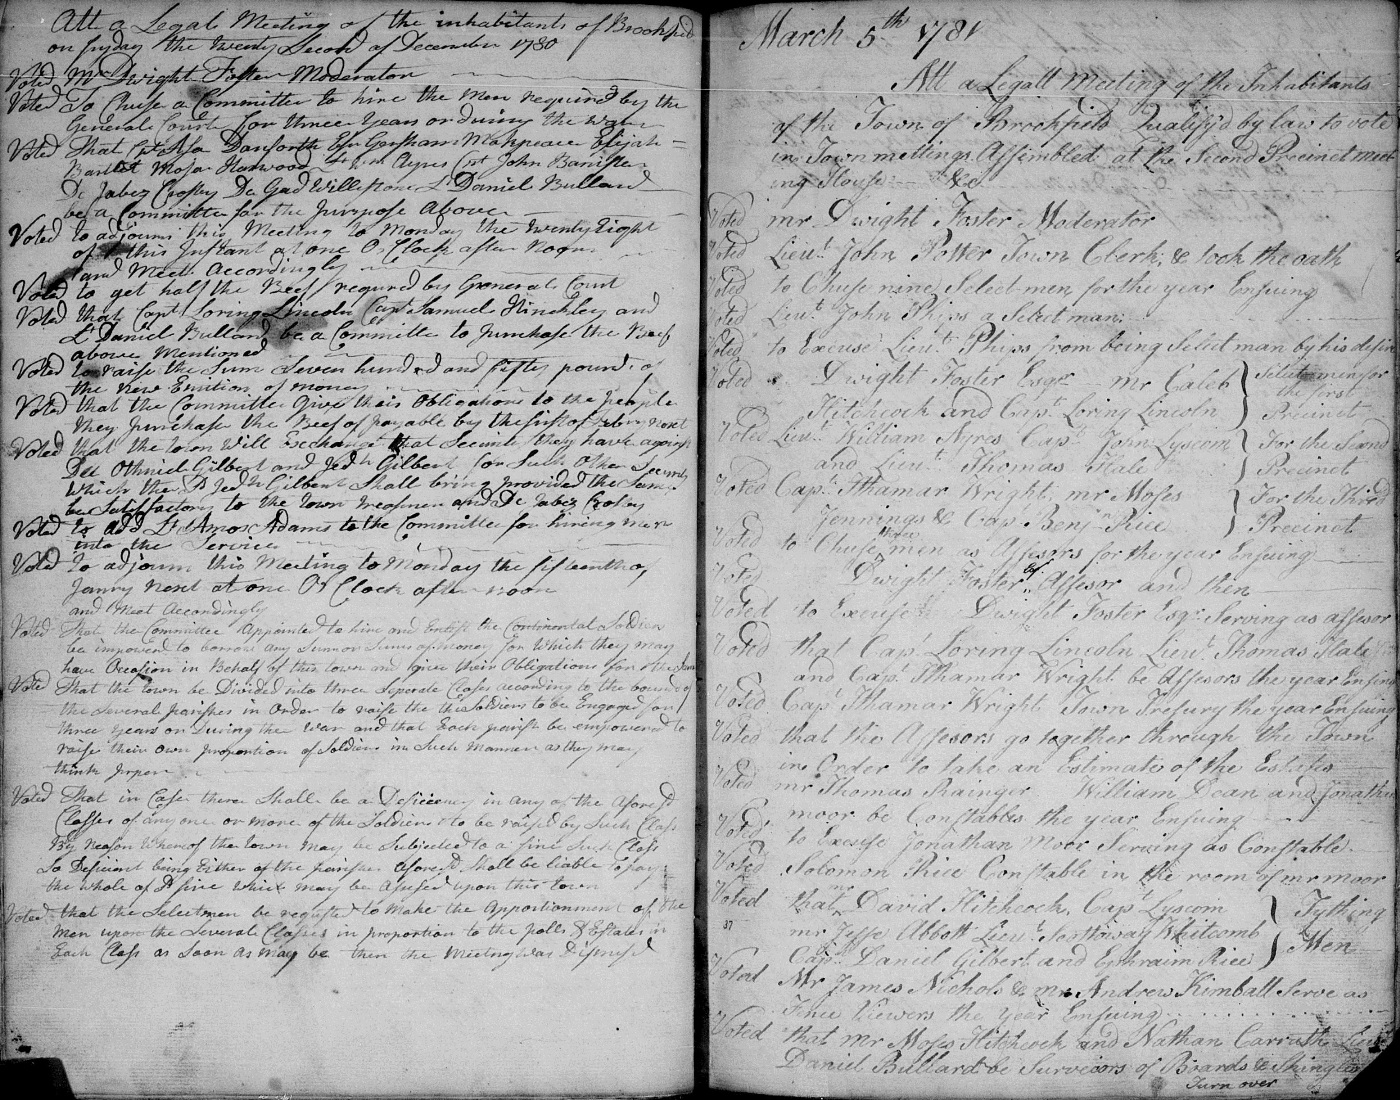 Att a Legal Meeting of the inhabitants of Brookfield
on fryday the twenty Second of December 1780
Voted Mr Dwight Foster Moderator
Voted To Chuse a Committee to hire the Men required by the
General Court for three years or during the War
Voted That Cpt Asa Danforth Esqr Gersham Makepeace Elijah
Bartlet Moses Harwood Lt Wm Ayres Cpt John Banister
De Jabez Crosby De Gad Williston Lt Daniel Bullard
be a Committee for the Purpose Above
Voted to adjourn this Meeting to Monday the twenty Eight
of this Instant at one O Clock after Noon
and Meet Accordingly
Voted to get half the Beef required by General Court
Voted that Capt Loring Lincoln Capt Samuel Hinckley and
Lt Daniel Bullard be a Committe to purchase the Beef
above Mentioned
Voted to raise the Sum Seven hundred and fifty pounds of
the new Emition of money
Voted that the Committee Give their Obligations to the people
they purchase the Beef of payable by the first of next
Voted that the town will Exchange that Security they have against
Des Othniel Gilbert and Jedh Gilbert for Such other Security
which the Sd Jedh Gilbert Shall bring provided the Same
be Satisfactory to the town treasurer and De Jabez Crosby
Voted to add Lt Amos Adams to the Committee for hireing men
into the Service
Voted to adjourn this Meeting to Monday the fifteenth of
Janry next at one O Clock after noon
and Meet Accordingly
Voted That the Committee Appointed to hire and Enlist the Continental Soldiers
be impowred to borrow any Sum or Sums of money for which they may
have Occasion in Behalf of this town and give their Obligations for the Same
Voted That the town be Divided into three Seperate Clases according to the bounds of
the Several parishes in Order to raise the Soldiers to be Engaged for
three years or During the War and that Each parish be empowered to
raise their own proportion of Soldiers in Such Manner as they may
think proper
Voted That in Case there Shall be a Deficiency in any of the Aforesd
Classes of any one or more of the Soldiers to be raised by Such Class
By reason whereof the town may be Subjected to a fine Such Class
So Deficient being Either of the parishes Aforesd Shall be liable to pay
the whole of Sd fine which may be Assesed upon this town
Voted that the Selectmen be requested to Make the Apportionment of the
Men upon the Several Classes in proportion to the polls & Estates in
Each Class as Soon as may be then the Meeting was Dismised
March 5th 1781
Att a Legall meeting of the Inhabitants
of the Town of Brookfield Qualify'd by law to vote
in Town meetings Assembled at the Second Precinct meet
ing House &c
Voted mr Dwight Foster Moderator
Voted Lieut John Potter Town Clerk, & took the oath
Voted to Chuse nine Select men for the year Ensuing
Voted Lieut John Phips a Select man
Voted to Excuse Lieut Phips from being Select man by his desire
Voted Dwight Foster Esqr mr Caleb
Hitchcock and Capt Loring Lincoln
Selectmen for
the first
Precinct
Voted Lieut William Ayres Capt John Lyscom
and Lieut Thomas Hale
For the Second
Precinct
Voted Capt Thamar Wright, mr Moses
Jennings & Cap Benjn Rice
For the Third
Precinct
Voted to Chuse three men as Assesors for the year Ensuing
Voted Dwight Foster Esqr Assesor and then
Voted to Excuse Dwight Foster Esqr Serving as assesor
Voted that Capt Loring Lincoln Lieut Thomas Hale
and Capt Thamar Wright be Assesors the year Ensuing
Voted Capt Thamar Wright Town Tresury the year Ensuing
Voted that the Assesors go together through the Town
in Order to take an Estimate of the Estates
Voted mr Thomas Rainger William Dean and Jonathan
moor be Constables the year Ensuing
Voted to Excuse Jonathan Moor Serving as Constable
Voted Solomon Rice Constable in the room of mr moor
Voted that mr David Hitchcock, Capt Lyscom
mr Jesse Abbott Lieut Whitcomb
Capt Daniel Gilbert and Ephraim Rice
Tything
Men
37
Voted Mr James Nichols & mr Andrew Kimball Serve as
Fence Viewers the year Ensuing
Voted that mr Moses Hitchcock and Nathan Carruth Lieut
Daniel Bullard be Surveiors of Boards & Shingles
Turn over